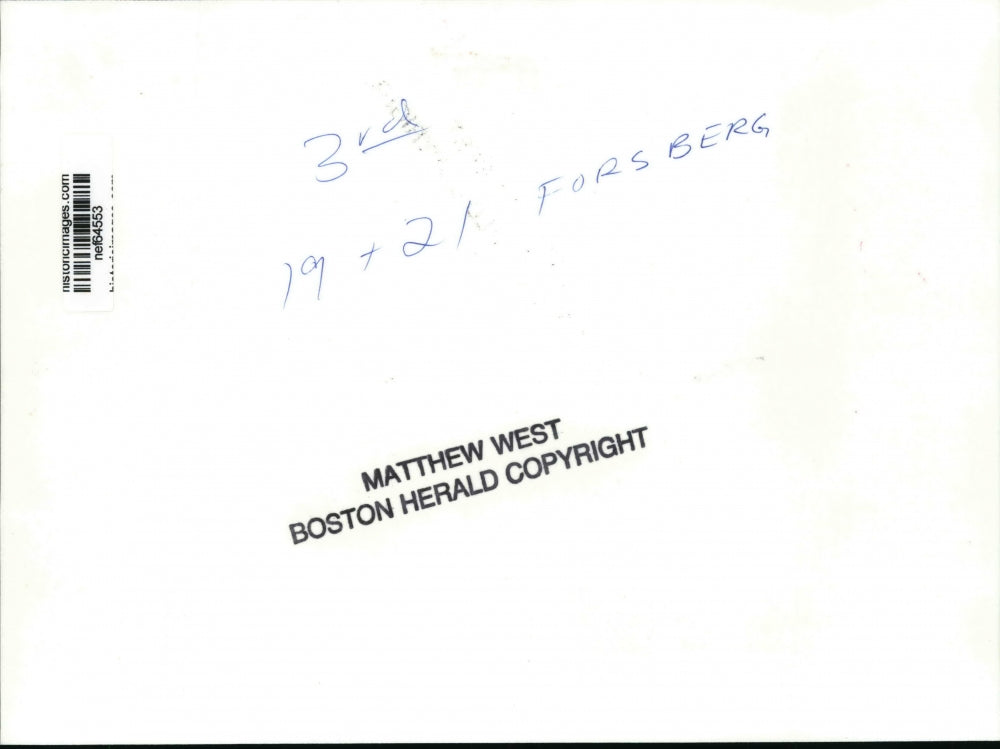 3rd
19 + 21 FORSBERG
MATTHEW WEST
BOSTON HERALD COPYRIGHT
historicimages.com
nef64553